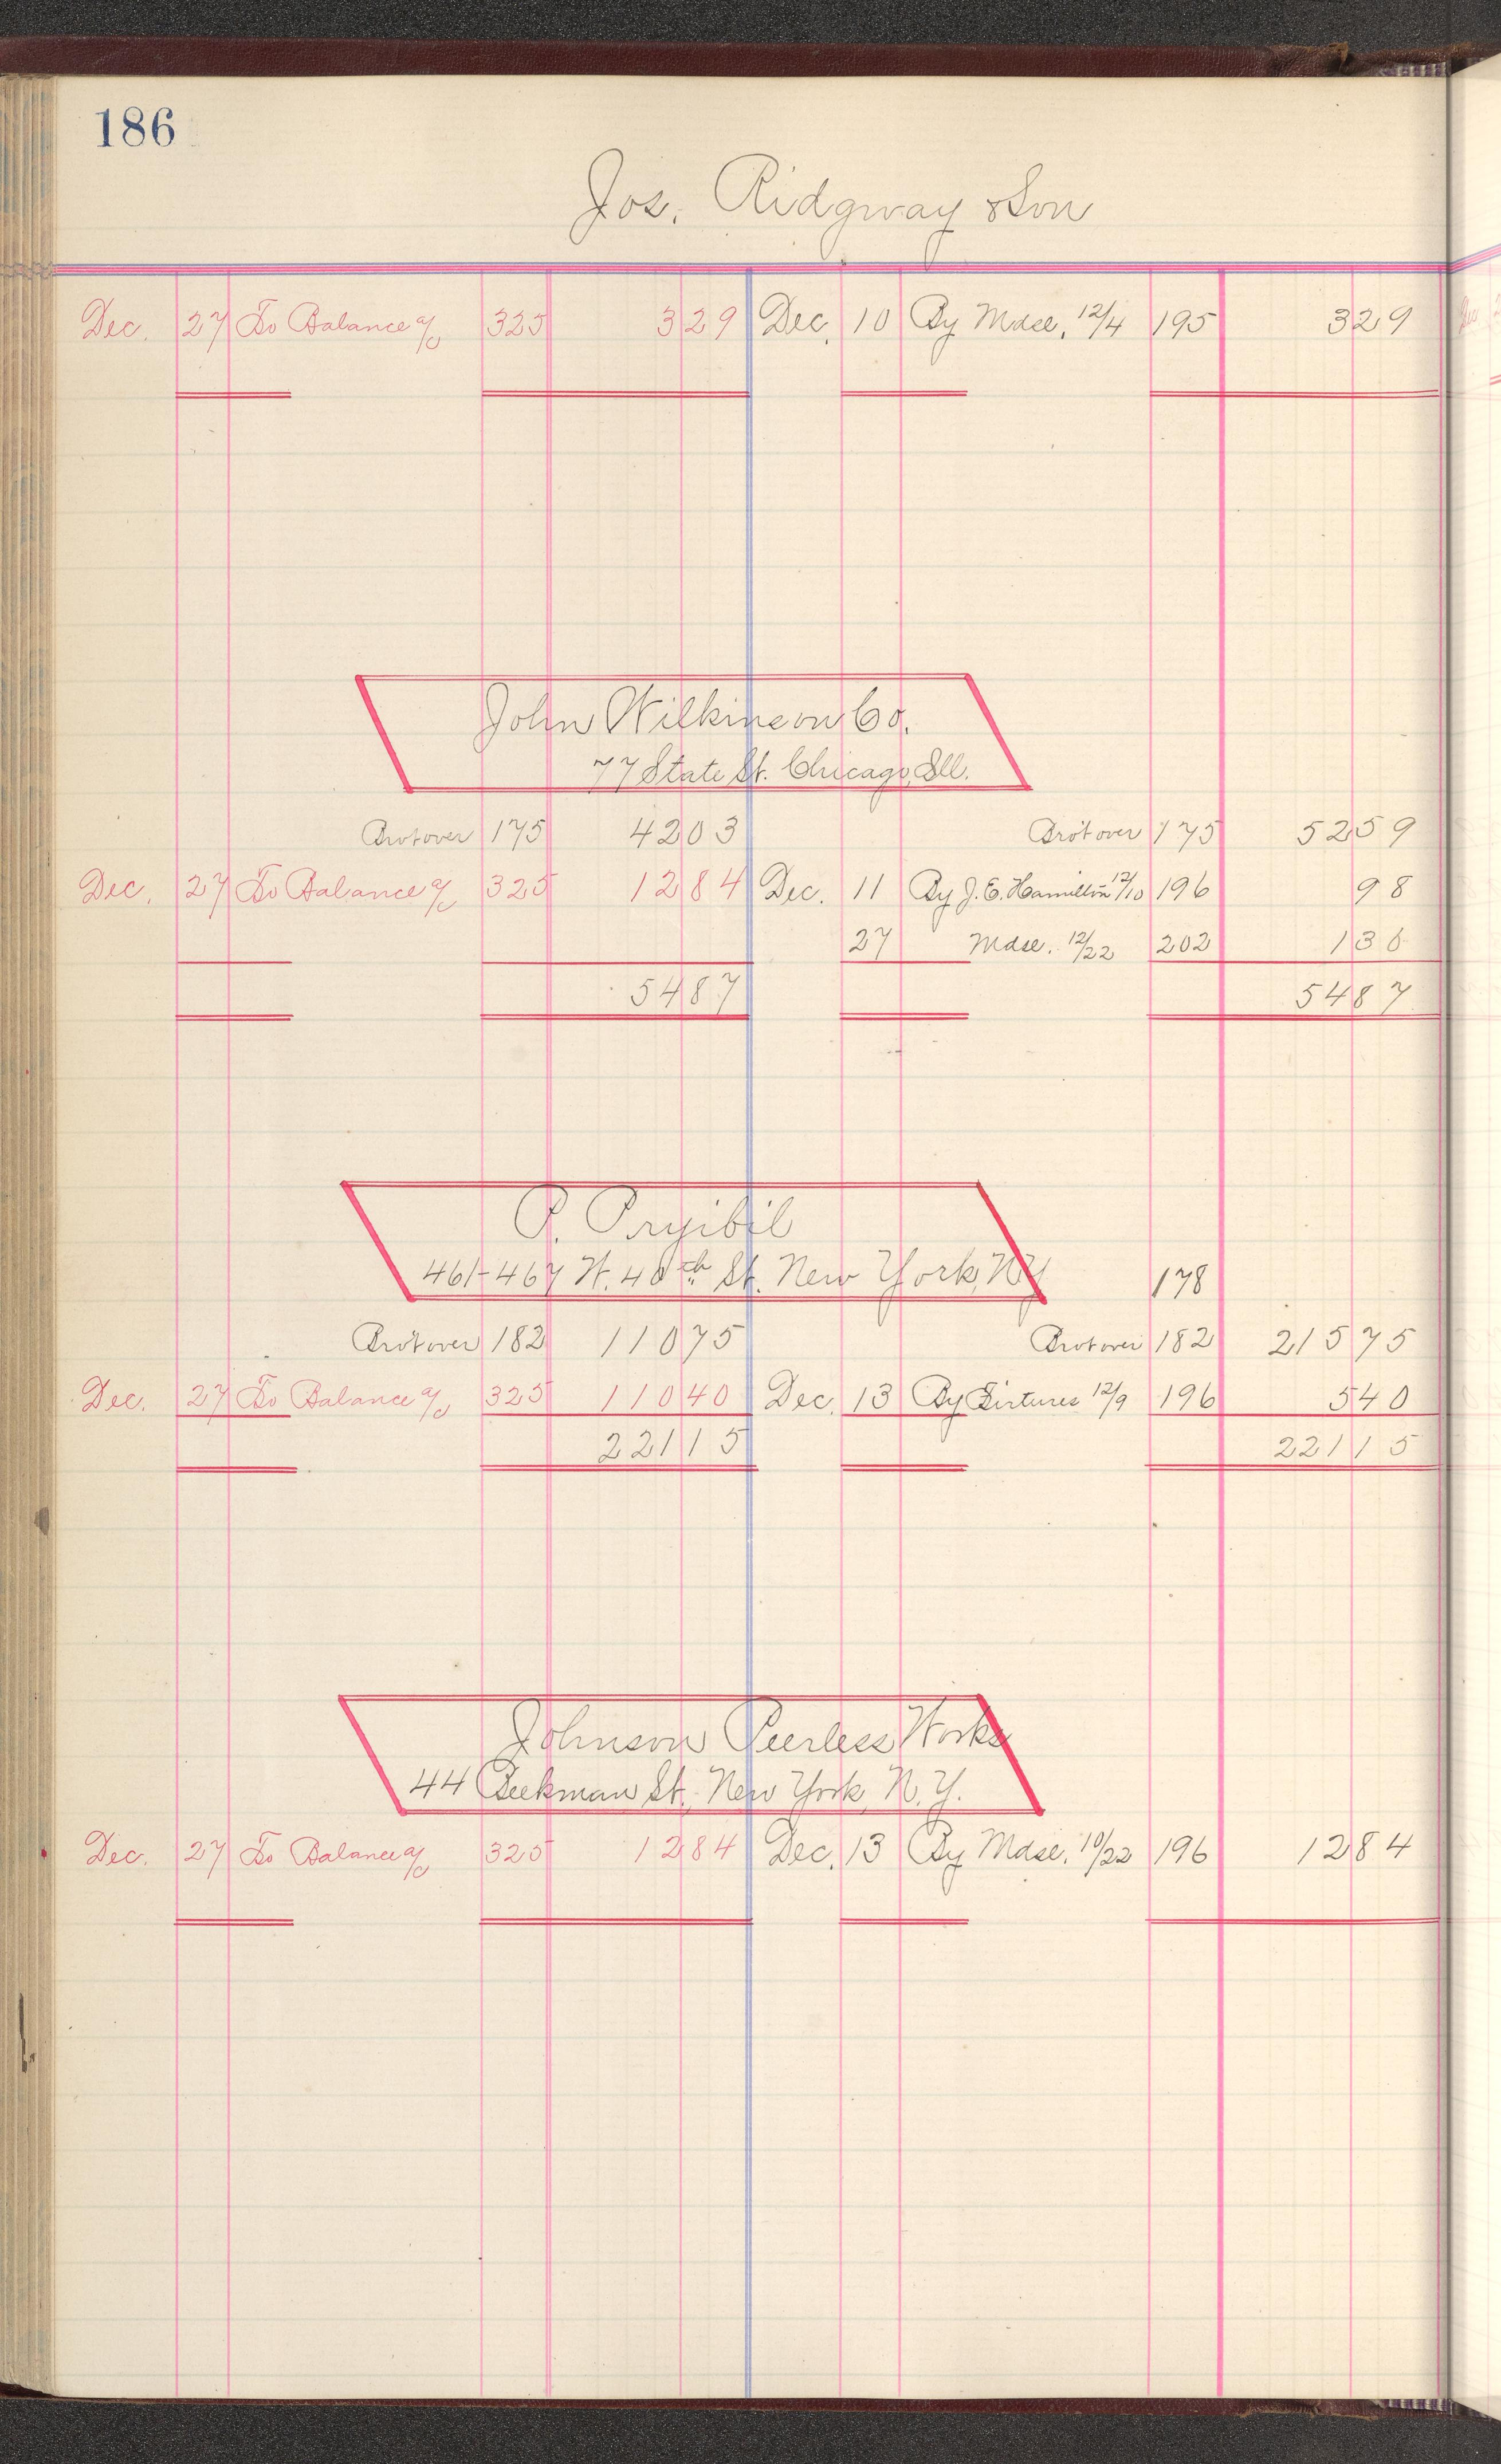 186
Jos. Ridgway & Son
Dec. 27 To Balance a/c 325 3 29 Dec. 10 By Mdse. 12/4 195 3 29
John Wilkinson Co.
77 State St. Chicago, Ill.
Bro't over 175 42 03 Bro't over 175 52 59
Dec. 27 To Balance a/c 325 12 84 Dec. 11 By J. E. Hamilton 12/10 196 98
27 Mdse. 12/22 202 1 30
54 87 54 87
P. Pryibil
461-467 W. 40th St. New York, N.Y
178
Bro't over 182 110 75 Bro't over 182 215 75
Dec. 27 To Balance a/c 325 110 40 Dec. 13 By Fixtures 12/9 196 5 40
221 15 221 15
Johnson Peerless Works
44 Beekman St., New York, N.Y.
Dec. 27 To Balance a/c 325 12 84 Dec. 13 By Mdse. 10/22 196 12 84